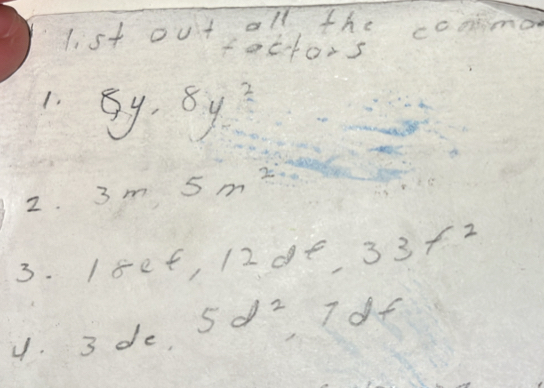 list out all the common
factors
1. 8y, 8y²
2. 3m, 5m²
3. 18ef, 12df, 33f²
4. 3de, 5d², 7df